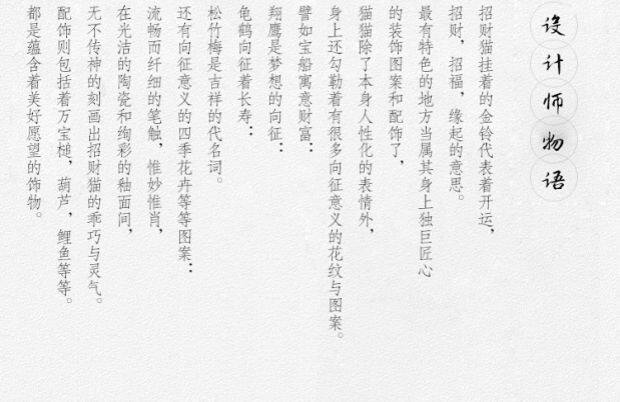 设计师物语
招财猫挂着的金铃代表着开运，
招财，招福，缘起的意思。
最有特色的地方当属其身上独巨匠心
的装饰图案和配饰了，
猫猫除了本身人性化的表情外，
身上还勾勒着有很多向征意义的花纹与图案。
譬如宝船寓意财富：
翔鹰是梦想的向征：
龟鹤向征着长寿：
松竹梅是吉祥的代名词。
还有向征意义的四季花卉等等图案：
流畅而纤细的笔触，惟妙惟肖，
在光洁的陶瓷和绚彩的釉面间，
无不传神的刻画出招财猫的乖巧与灵气。
配饰则包括着万宝槌，葫芦，鲤鱼等等。
都是蕴含着美好愿望的饰物。